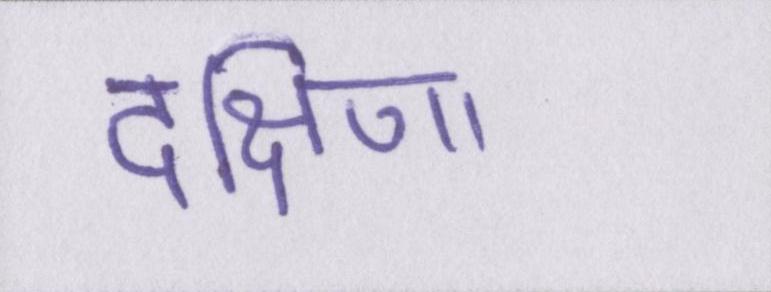 दक्षिण